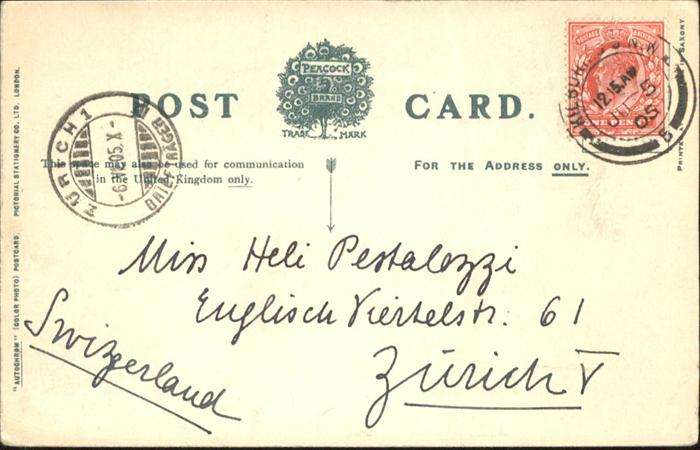 "AUTOCHROM" (COLOR PHOTO) POSTCARD. PICTORIAL STATIONERY CO. LTD. LONDON.
PEACOCK
BRAND
TRADE MARK
POST CARD.
This space may also be used for communication
in the United Kingdom only.
FOR THE ADDRESS ONLY.
ZÜRICH 1
BRIEFTRÄGER
KILBURN N.W.
12.15.AM
05
ONE PENNY
IN SAXONY
Miss Heli Pestalozzi
Englisch Viertelstr. 61
Zürich V
Swizzerland